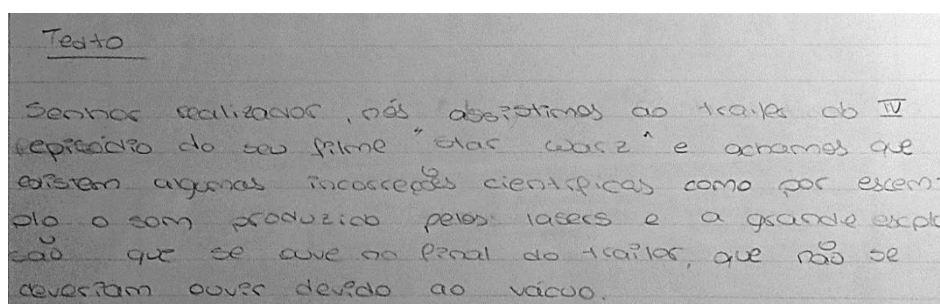 Texto
Senhor realizador, nós abssistimos ao trailer do IV
repisódio do seu filme "star warz" e achamos que
existem algumas incorreções cientificas como por escem-
plo o som produzido pelos lasers e a grande esplo
são que se ouve no final do trailer, que não se
deveriam ouver devido ao vácuo.